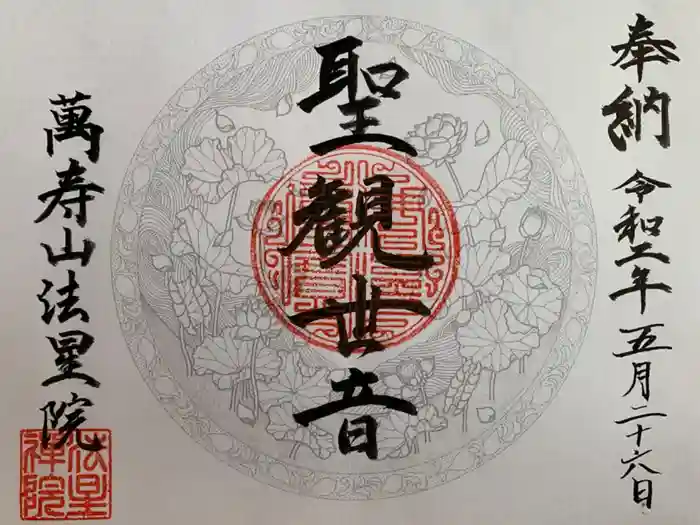 奉納 令和二年五月二十六日
聖観世音
萬寿山法星院
法星
禅院